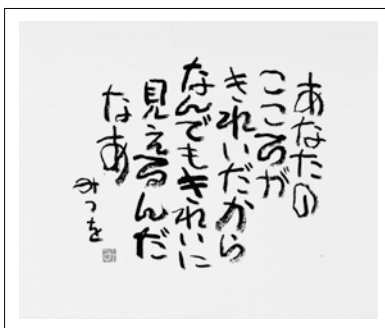 あなたの
こころが
きれいだから
なんでもきれいに
見えるんだ
なあ
みつを